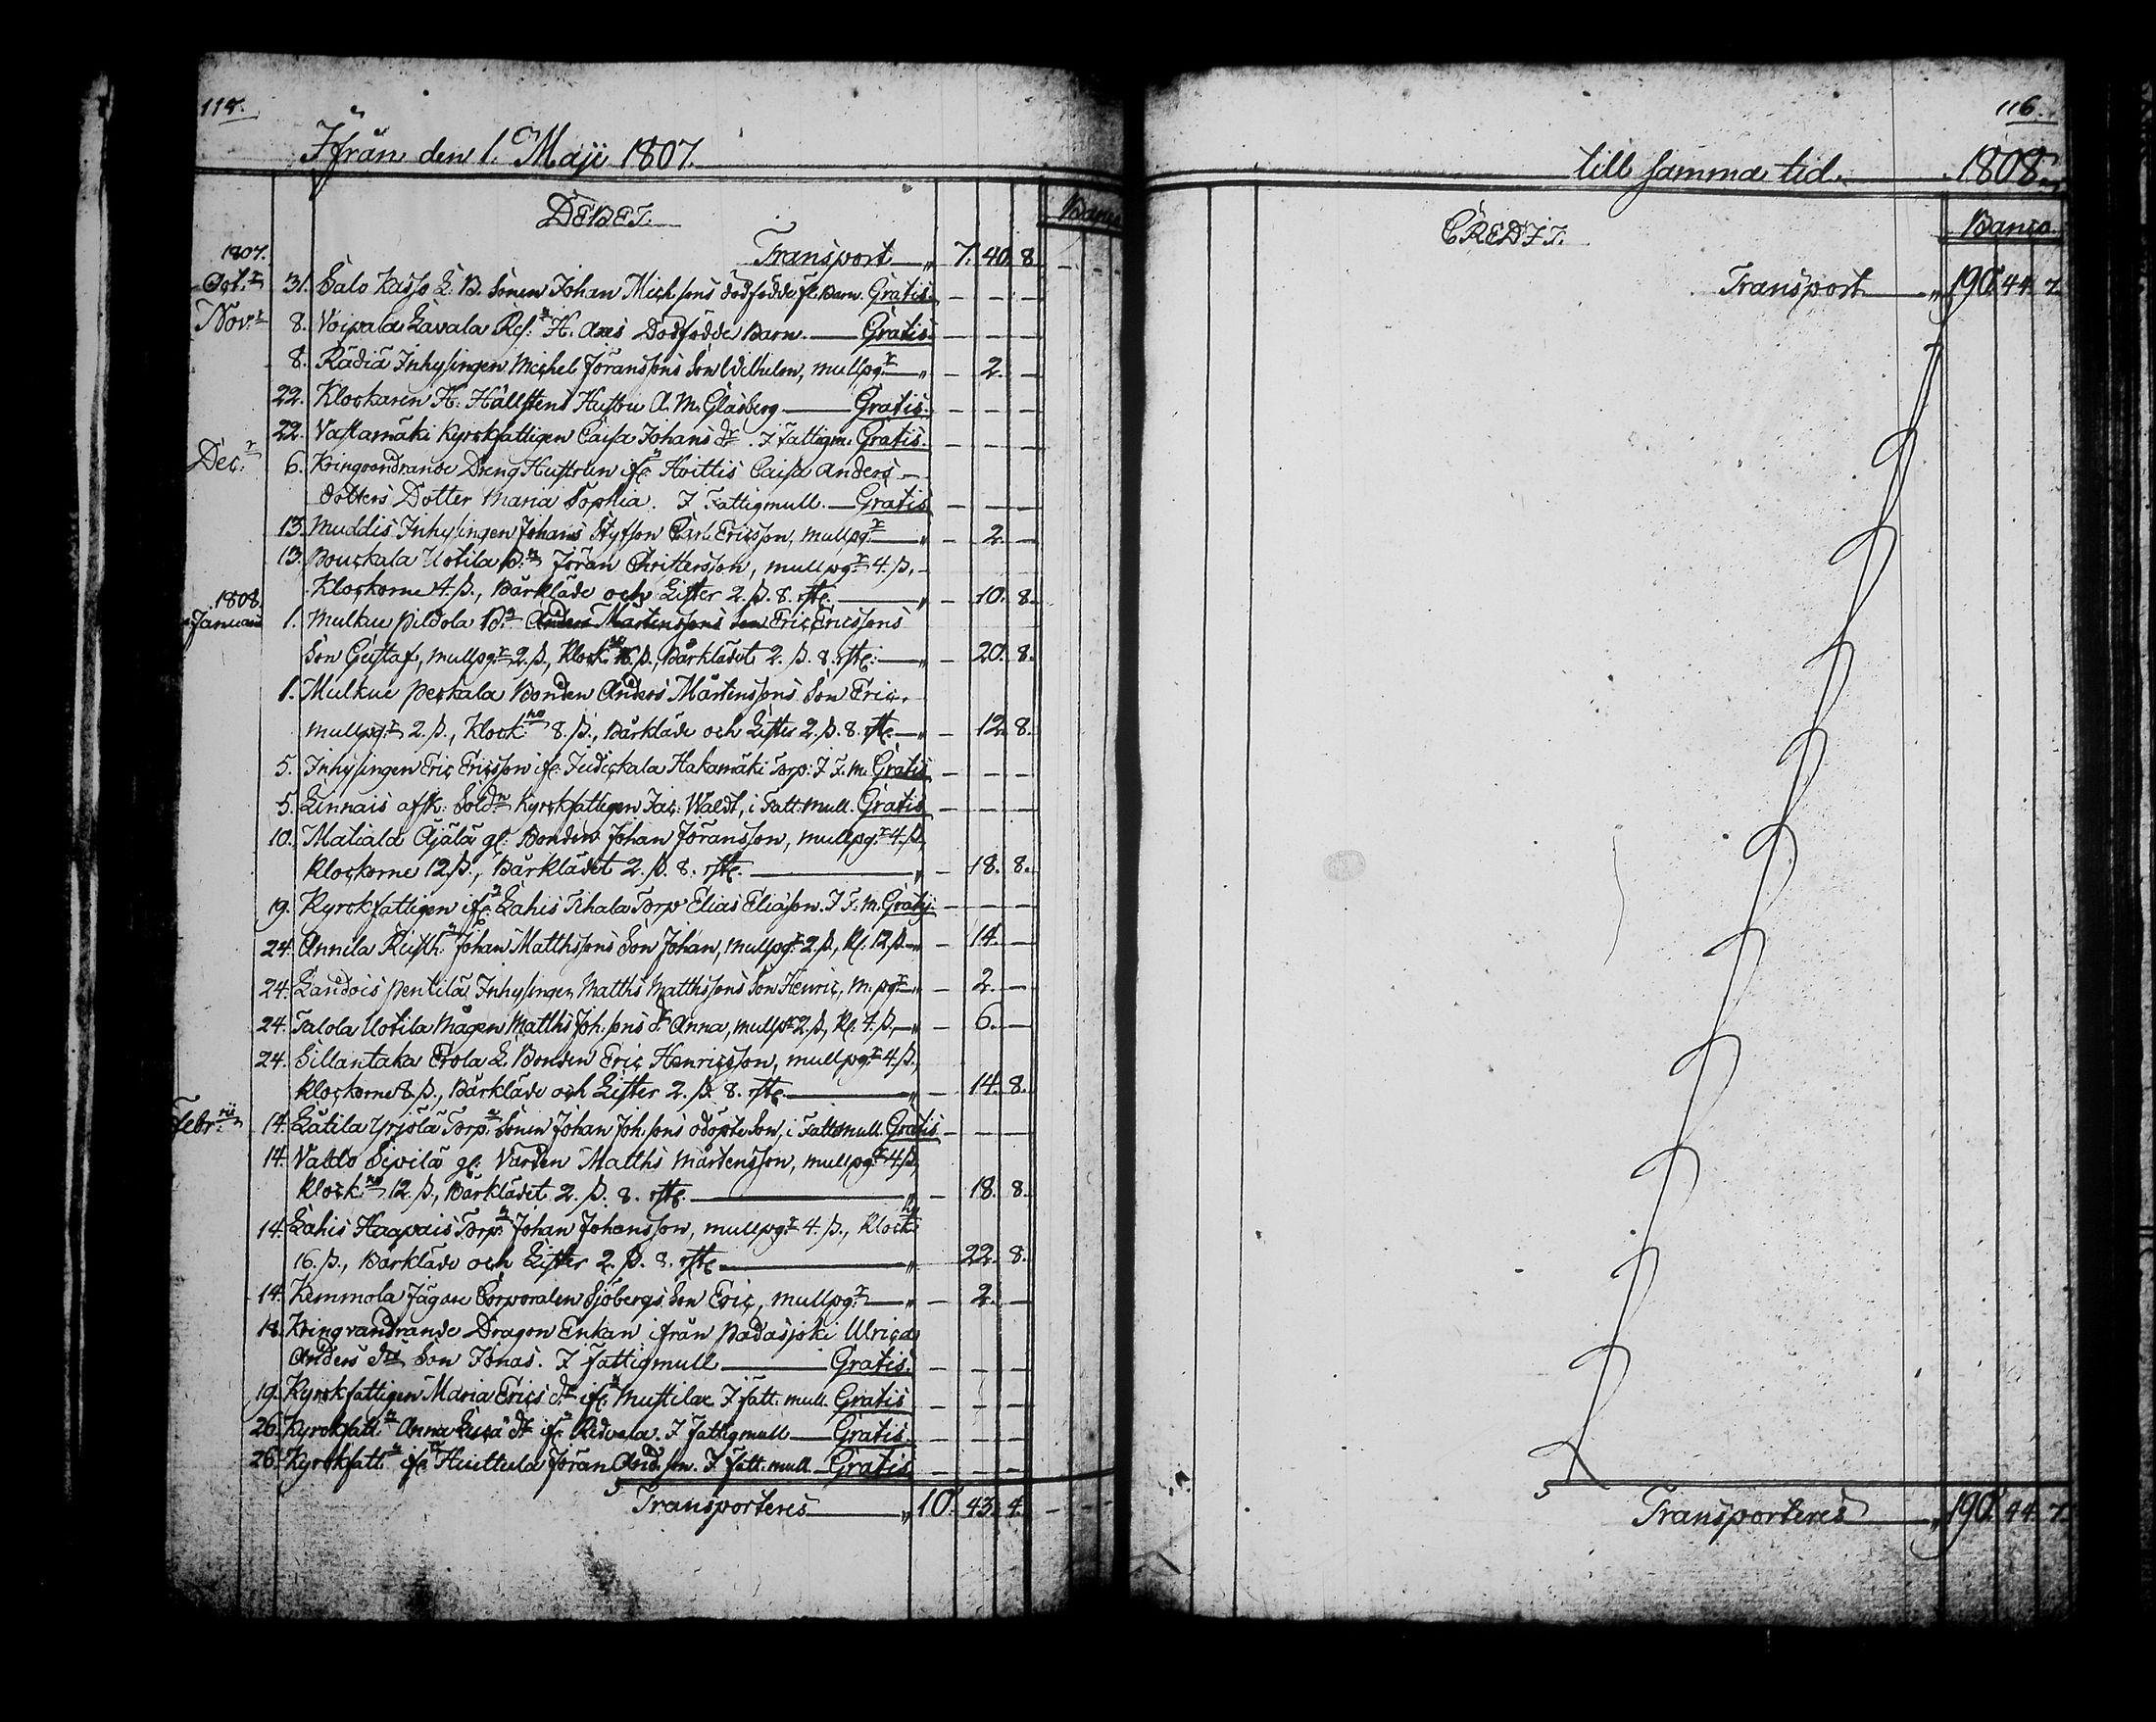 114.
Ifrån den 1. Maji 1807.
DEBET.
Banco
1807.
Transport „ 7. 40. 8. – – –
Oct:r 31. Salo Kasso L. B. Sonen Johan Mich:sons dödfödde fl. Barn. Gratis. – – –
Nov:r 8. Voipala Lavala Rcf:n H. Axes Dödfödde Barn. Gratis. – – –
8. Rädiä Inhysingen Michel Jöranssons Son Wilhelm, mullpg:r „ – 2. –
22. Klockaren H: Hällstens Hustru A. M. Glasberg Gratis. – – –
22. Vastamäki Kyrckfattigen Caisa Johans dr. I Fattigm. Gratis. – – –
Dec:r 6. Kringvandrande Dreng Hustrun ifr:n Hvittis Caisa Anders
dotters Dotter Maria Sophia. I Fattigmull. Gratis – – –
13. Muddis Inhysingen Johans Styfson Carl Ericsson, mullpg:r „ – 2. –
13. Bouckala Uotila B:n Jöran Christersson, mullpg:r 4. ß.
Klockorne 4. ß., Bårkläde och Lister 2. ß. 8. rst. „ – 10. 8.
1808.
Januarii 1. Mulkue Pildola B:n Anders Martenssons Son Eric Ericssons
Son Gustaf, mullpg:r 2. ß., Klock:ne 16. ß., Bårklädet 2. ß. 8. rst. „ – 20. 8.
1. Mulkue Peckala Bonden Anders Mårtenssons Son Eric,
mullpg:r 2. ß., Klock:ne 8. ß., Bårkläde och Lister 2. ß. 8. rst. „ – 12. 8.
5. Inhysingen Eric Ericsson ifr. Judickala Hakamäki Torp. I F. M. Gratis – – –
5. Linnais afsk: Sold:n Kyrckfattigen Jac: Waldt, i Fatt: mull. Gratis – – –
10. Matiala Äjälä gl: Bonden Johan Jöransson, mullpg:r 4. ß.
Klockorne 12 ß., Bårklädet 2. ß. 8. rst. „ – 18. 8.
19. Kyrckfattigen ifr:n Lahis Tihala Torp Elias Eliasson. I F. M. Gratis – – –
24. Annila Rusth:n Johan Matthssons Son Johan, mullpg:r 2. ß., Kl. 12. ß. – 14. –
24. Laudois Pentilä Inhysingen Matths Matthssons Son Henric, m. pg:r „ – 2. –
24. Talola Uotila Mågen Matths Joh:sons dr. Anna, mullp:r 2. ß, Kl. 4. ß. „ – 6. –
24. Sillantaka Erola L. Bonden Eric Henricsson, mullpg:r 4. ß.,
Klockorne 8. ß., Bårkläde och Lister 2. ß. 8. rst. „ – 14. 8.
Febr:rii 14. Lätila Yrjölä Torp:n Sonen Johan Joh:sons odöpte Son, i Fatt:mull. Gratis – – –
14. Valdo Sipilä gl: Värden Matths Mårtensson, mullpg:r 4. ß,
Klock:ne 12. ß., Bårklädet 2. ß. 8. rst. „ – 18. 8.
14. Lahis Haapais Torp:n Johan Johansson, mullpg:r 4. ß., Klock:ne
16. ß., Bårkläde och Lister 2. ß. 8. rst. „ 22. 8.
14. Kemmola Jägare Corporalen Sjöbergs Son Eric, mullpg:r „ – 2. –
18. Kringvandrande Dragon Enkan ifrån Padasjoki Ulrica
Anders drs Son Jonas. I fattigmull Gratis. – – –
19. Kyrckfattigen Maria Erics dr. ifr:n Mustila. I fatt: mull. Gratis – – –
26. Kyrckfatt:n Anna Lisa dr. ifr:n Ridvala. I fattigmull Gratis. – – –
26. Kyrckfatt:n ifr:n Huittula Jöran And:son. I fatt: mull. Gratis – – –
Transporteres „ 10. 43. 4. – – –
116.
till samma tid. 1808.
CREDIT.
Banco.
Transport „ 190. 44. 7.
Transporteres „ 190. 44. 7.